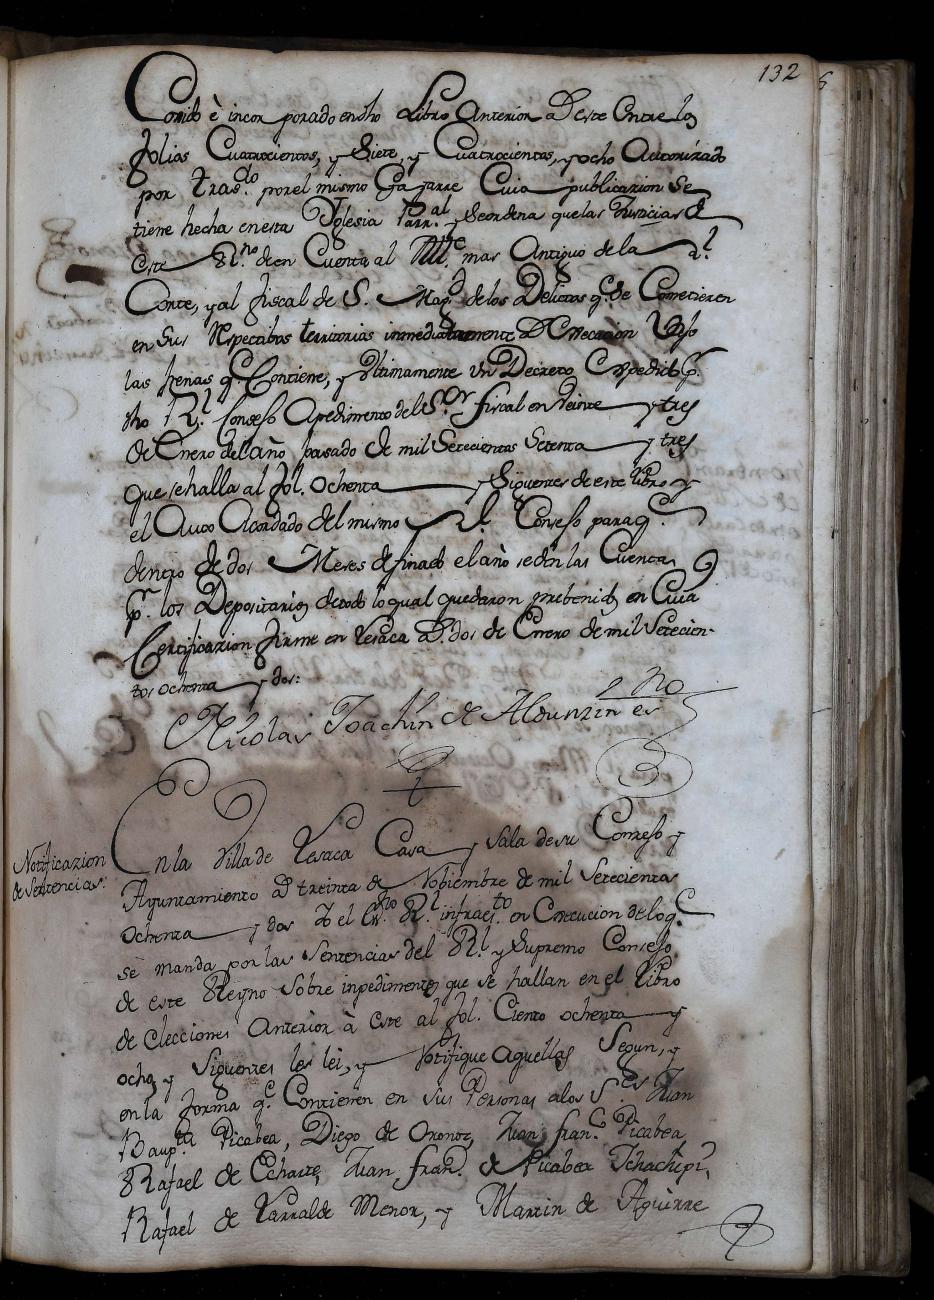 132
Corrido è incorporado en dho Libro Anterior a Deste Entre los
folias Cuatrocientos, y Siete, y Cuatrocientas, y ocho Autorizado
por tras.do por el mismo Gajarre Cuia publicazion Se
tiene hecha en esta Yglesia Parr.al y Se ordena que las Justicias de
este R.no den Cuenta al mas Antiguo de la R.l
Corte, y al fiscal de S. Mag.d de los Delictos q.e Se Cometieren
en Sus Respectibos territorios inmediatamente Vajo
las penas q.e Contiene, y Ultimamente Un Decreto Expedido p.r
dho R.l Consejo Apedimento del S.or fiscal en Veinte y tres
de Enero del año pasado de mil Setecientos Setenta y tres
que se halla al fol. ochenta y Siguentes de este libro y
el Auto Acordado del mismo R.l Consejo para q.e
dentro de dos Meses de finado el año se den las Cuentas
p.r los Depositarios de todo lo qual quedaron prebenidos en Cuia
Certificazion firme en Vesaca a D.dos de Enero de mil Setecien-
tos ochenta y dos:
Nicolas Joachin de Aldunzin es no
Notificazion
de Sentencias:
En la Villa de Vesaca Casa y Sala de su Conzejo y
Ayuntamiento a D treinta de Nobiembre de mil Setecientos
ochenta y dos Yo el Es.no R.l infraes.to en Execucion de lo q.e
se manda por las Sentencias del R.l y Supremo Consejo
de este Reyno Sobre inpedimentos que se hallan en el Libro
de elecciones Anterior à este al fol. Ciento ochenta y
ocho, y Siguentes les lei, y Notifique aquellas Segun, y
en la forma q.e Contienen en Sus Personas a los S.es Juan
Baup.ta Picabea, Diego de Oronoz, Juan fran.co Picabea,
Rafael de Echarte, Juan fran.co de Picabea Ichachipi,
Rafael de Yarralde Menor, y Martin de Aguirre